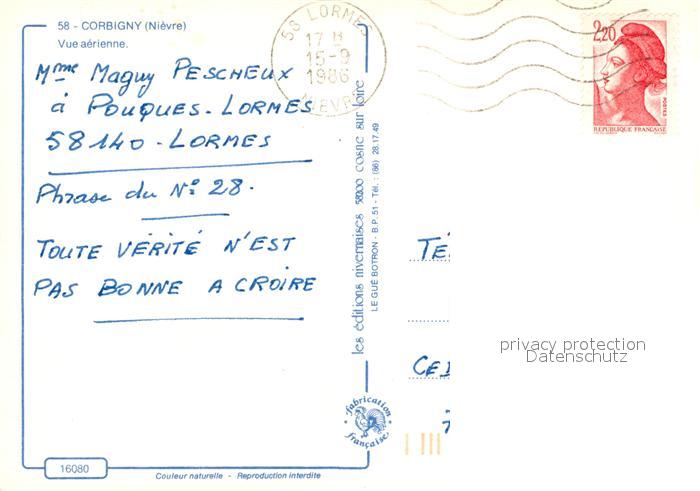 58 - CORBIGNY (Nièvre)
Vue aérienne.
Mme Maguy PESCHEUX
à POUQUES-LORMES
58140-LORMES
Phrase du N° 28.
TOUTE VÉRITÉ N'EST
PAS BONNE A CROIRE
16080
Couleur naturelle - Reproduction interdite
les éditions nivernaises 58200 cosne sur loire
LE GUÉ BOTRON - B.P. 51 - Tél. : (86) 28.17.49
fabrication
française
58 LORMES
17 H
15-9
1986
NIEVRE
2,20
POSTES
REPUBLIQUE FRANÇAISE
TÉ
CE
7
privacy protection
Datenschutz